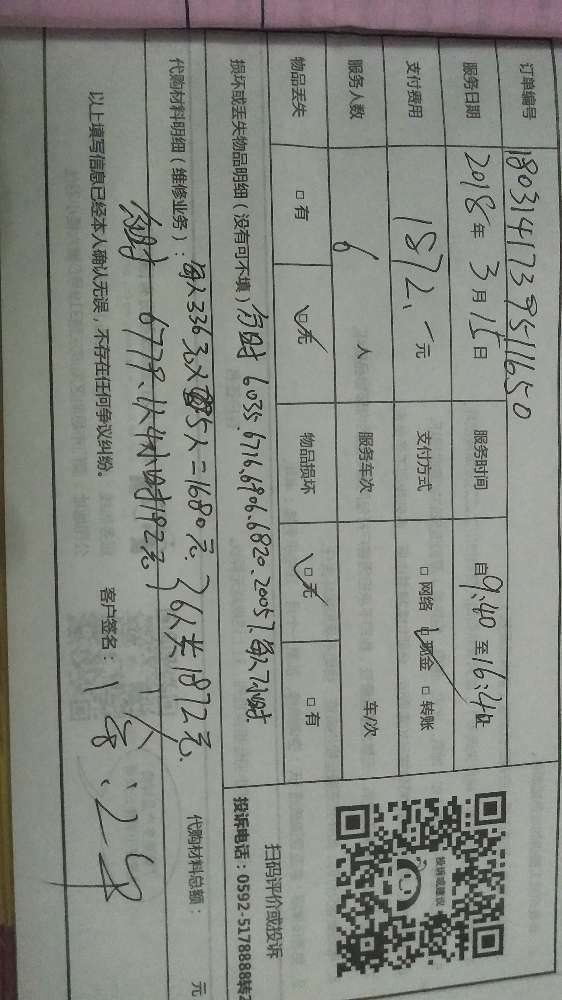 订单编号 1803141739511650
服务日期 2018年 3月 15日 服务时间 自9:40 至16:40
支付费用 1872.- 元 支付方式 □ 网络 □ 现金 □ 转账
服务人数 6 人 服务车次 车/次
物品丢失 □ 有 □ 无 物品损坏 □ 无 □ 有
损坏或丢失物品明细（没有可不填） 6035.6716.6806.6820.20057.每人7小时.
代购材料明细（维修业务）： 每人336元×5人=1680元. 6人共1872元.
6779.1人4小时192元
代购材料总额： 元
以上填写信息已经本人确认无误，不存在任何争议纠纷。 客户签名：
投诉或建议
扫码评价或投诉
投诉电话：0592-5178888转2